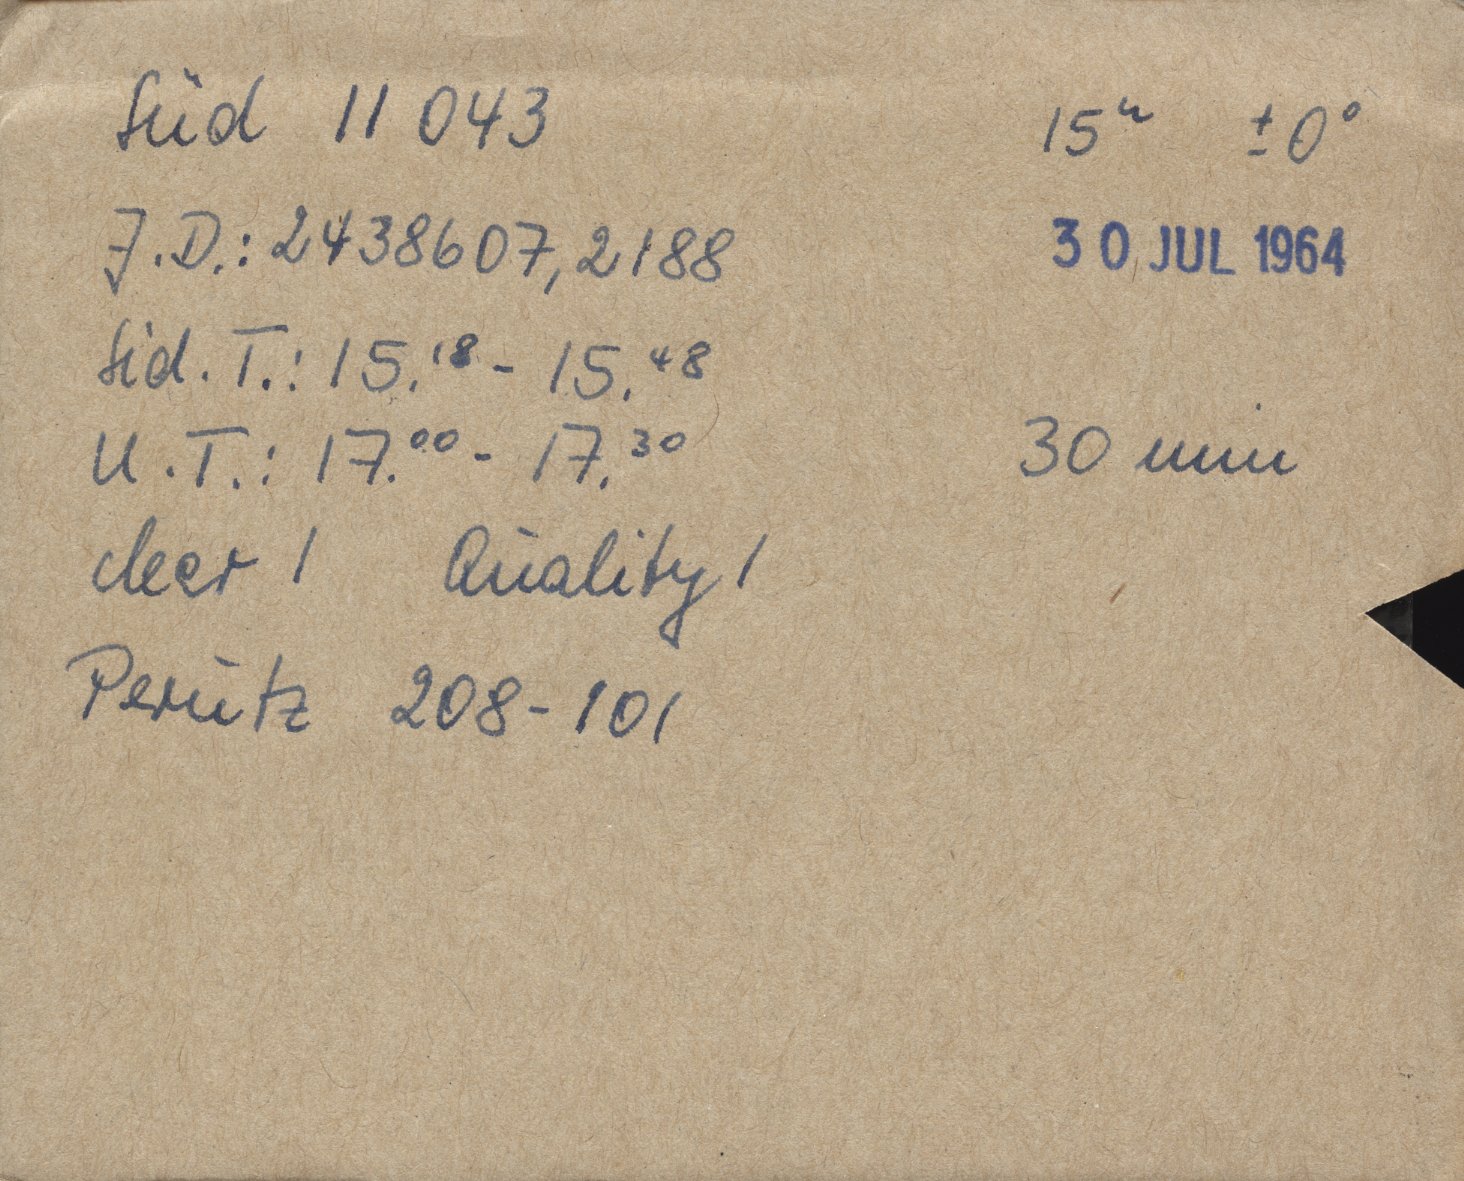 Süd 11 043 15ʰ ±0°
J.D.: 2438607,2188 30 JUL 1964
Sid. T.: 15.18 - 15.48
U.T.: 17.00 - 17.30 30 min
clear 1 Quality 1
Perutz 208-101